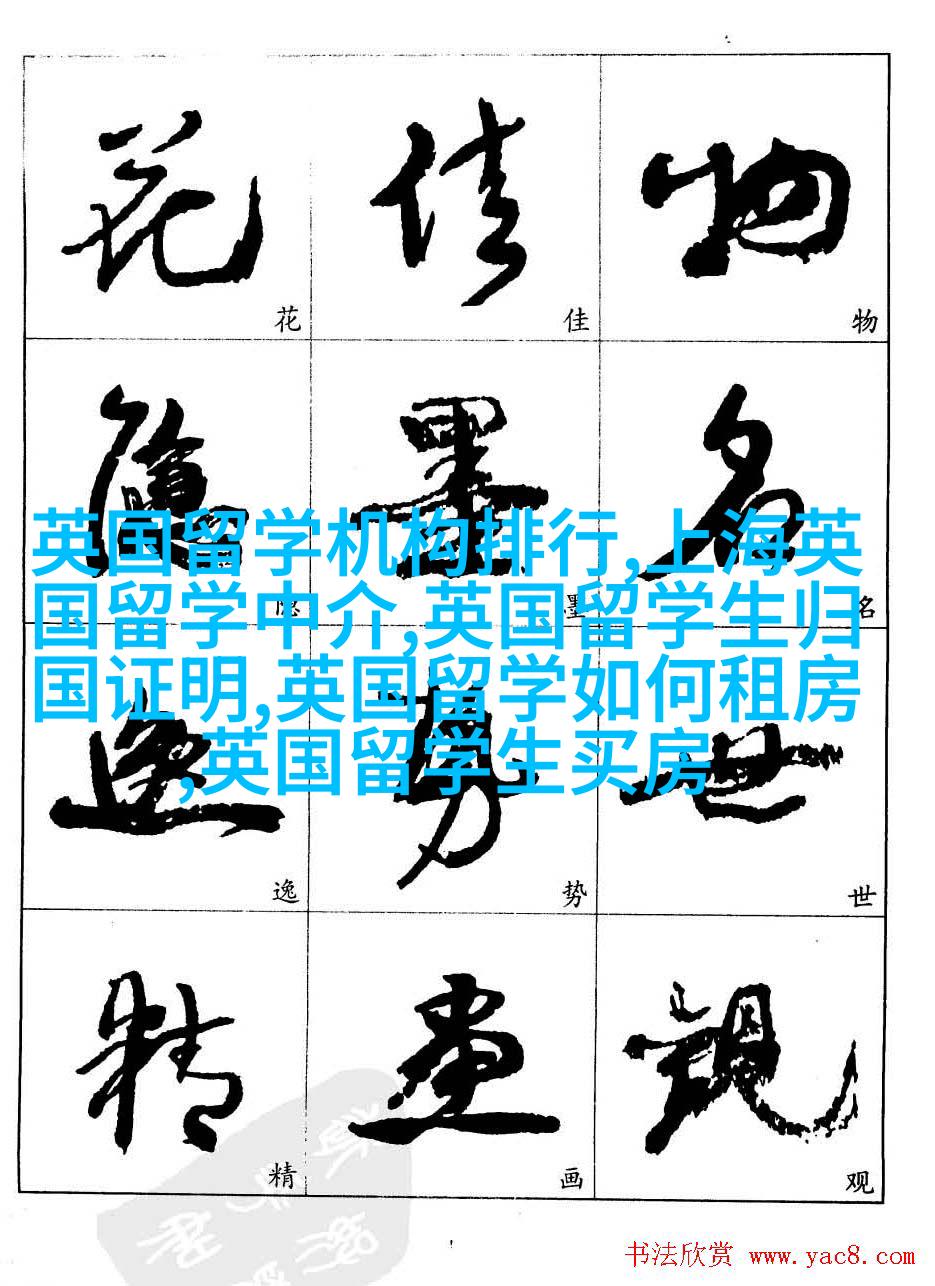 花 佳 物
花 佳 物
隐 墨 名
隐 墨 名
英国留学机构排行,上海英
国留学中介,英国留学生归
国证明,英国留学如何租房
,英国留学生买房
逸 势 世
逸 势 世
精 画 观
精 画 观
书法欣赏 www.yac8.com